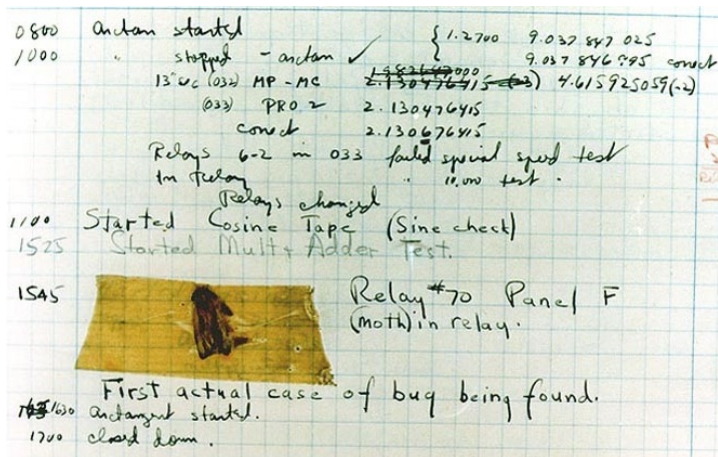 0800 antan started { 1.2700 9.037 847 025
1000 " stopped - antan ✓ 9.037 846 995 conect
13"uc (032) MP - MC 2.130476415 4.615925059(-2)
(033) PRO 2 2.130476415
conect 2.130676415
Relays 6-2 in 033 failed special speed test
In Relay " 10.000 test .
Relays changed
1100 Started Cosine Tape (Sine check)
1525 Started Mult + Adder Test.
1545 Relay #70 Panel F
(moth) in relay.
First actual case of bug being found.
1630 antangent started.
1700 closed down .